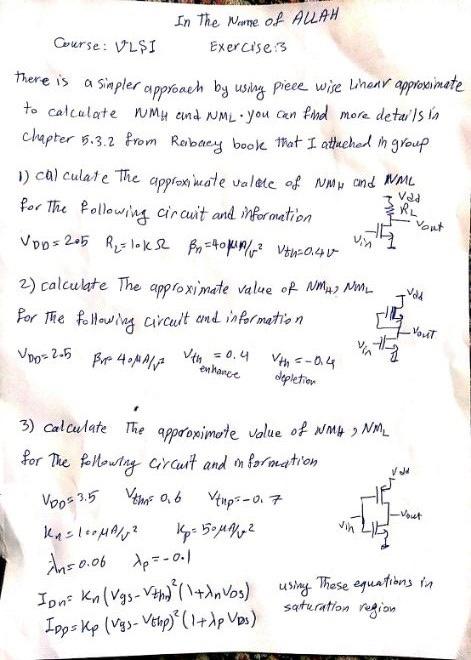 In The Name of ALLAH
Course: VLSI Exercise:3
There is a simpler approach by using piece wise linear approximate
to calculate NMH and NML. you can find more details in
chapter 5.3.2 from Rabaey book that I attached in group
1) calculate The approximate value of NMH and NML
for the following circuit and information
Vdd
RL
Vout
Vin
VDD = 2.5 RL = 10K Ω βn = 40 μA/V² Vth = 0.4 V
2) calculate The approximate value of NMH, NML
for The following circuit and information
Vdd
Vout
Vin
VDD = 2.5 βn = 40 μA/V² Vth = 0.4 Vth = -0.4
enhance depletion
3) calculate The approximate value of NMH, NML
for The following circuit and information
Vdd
Vout
Vin
VDD = 3.5 Vthn = 0.6 Vthp = -0.7
Kn = 100 μA/V² Kp = 50 μA/V²
λn = 0.06 λp = -0.1
IDn = Kn (Vgs - Vthn)² (1 + λn VDS) using These equations in
IDp = Kp (Vgs - Vthp)² (1 + λp VDS) saturation region